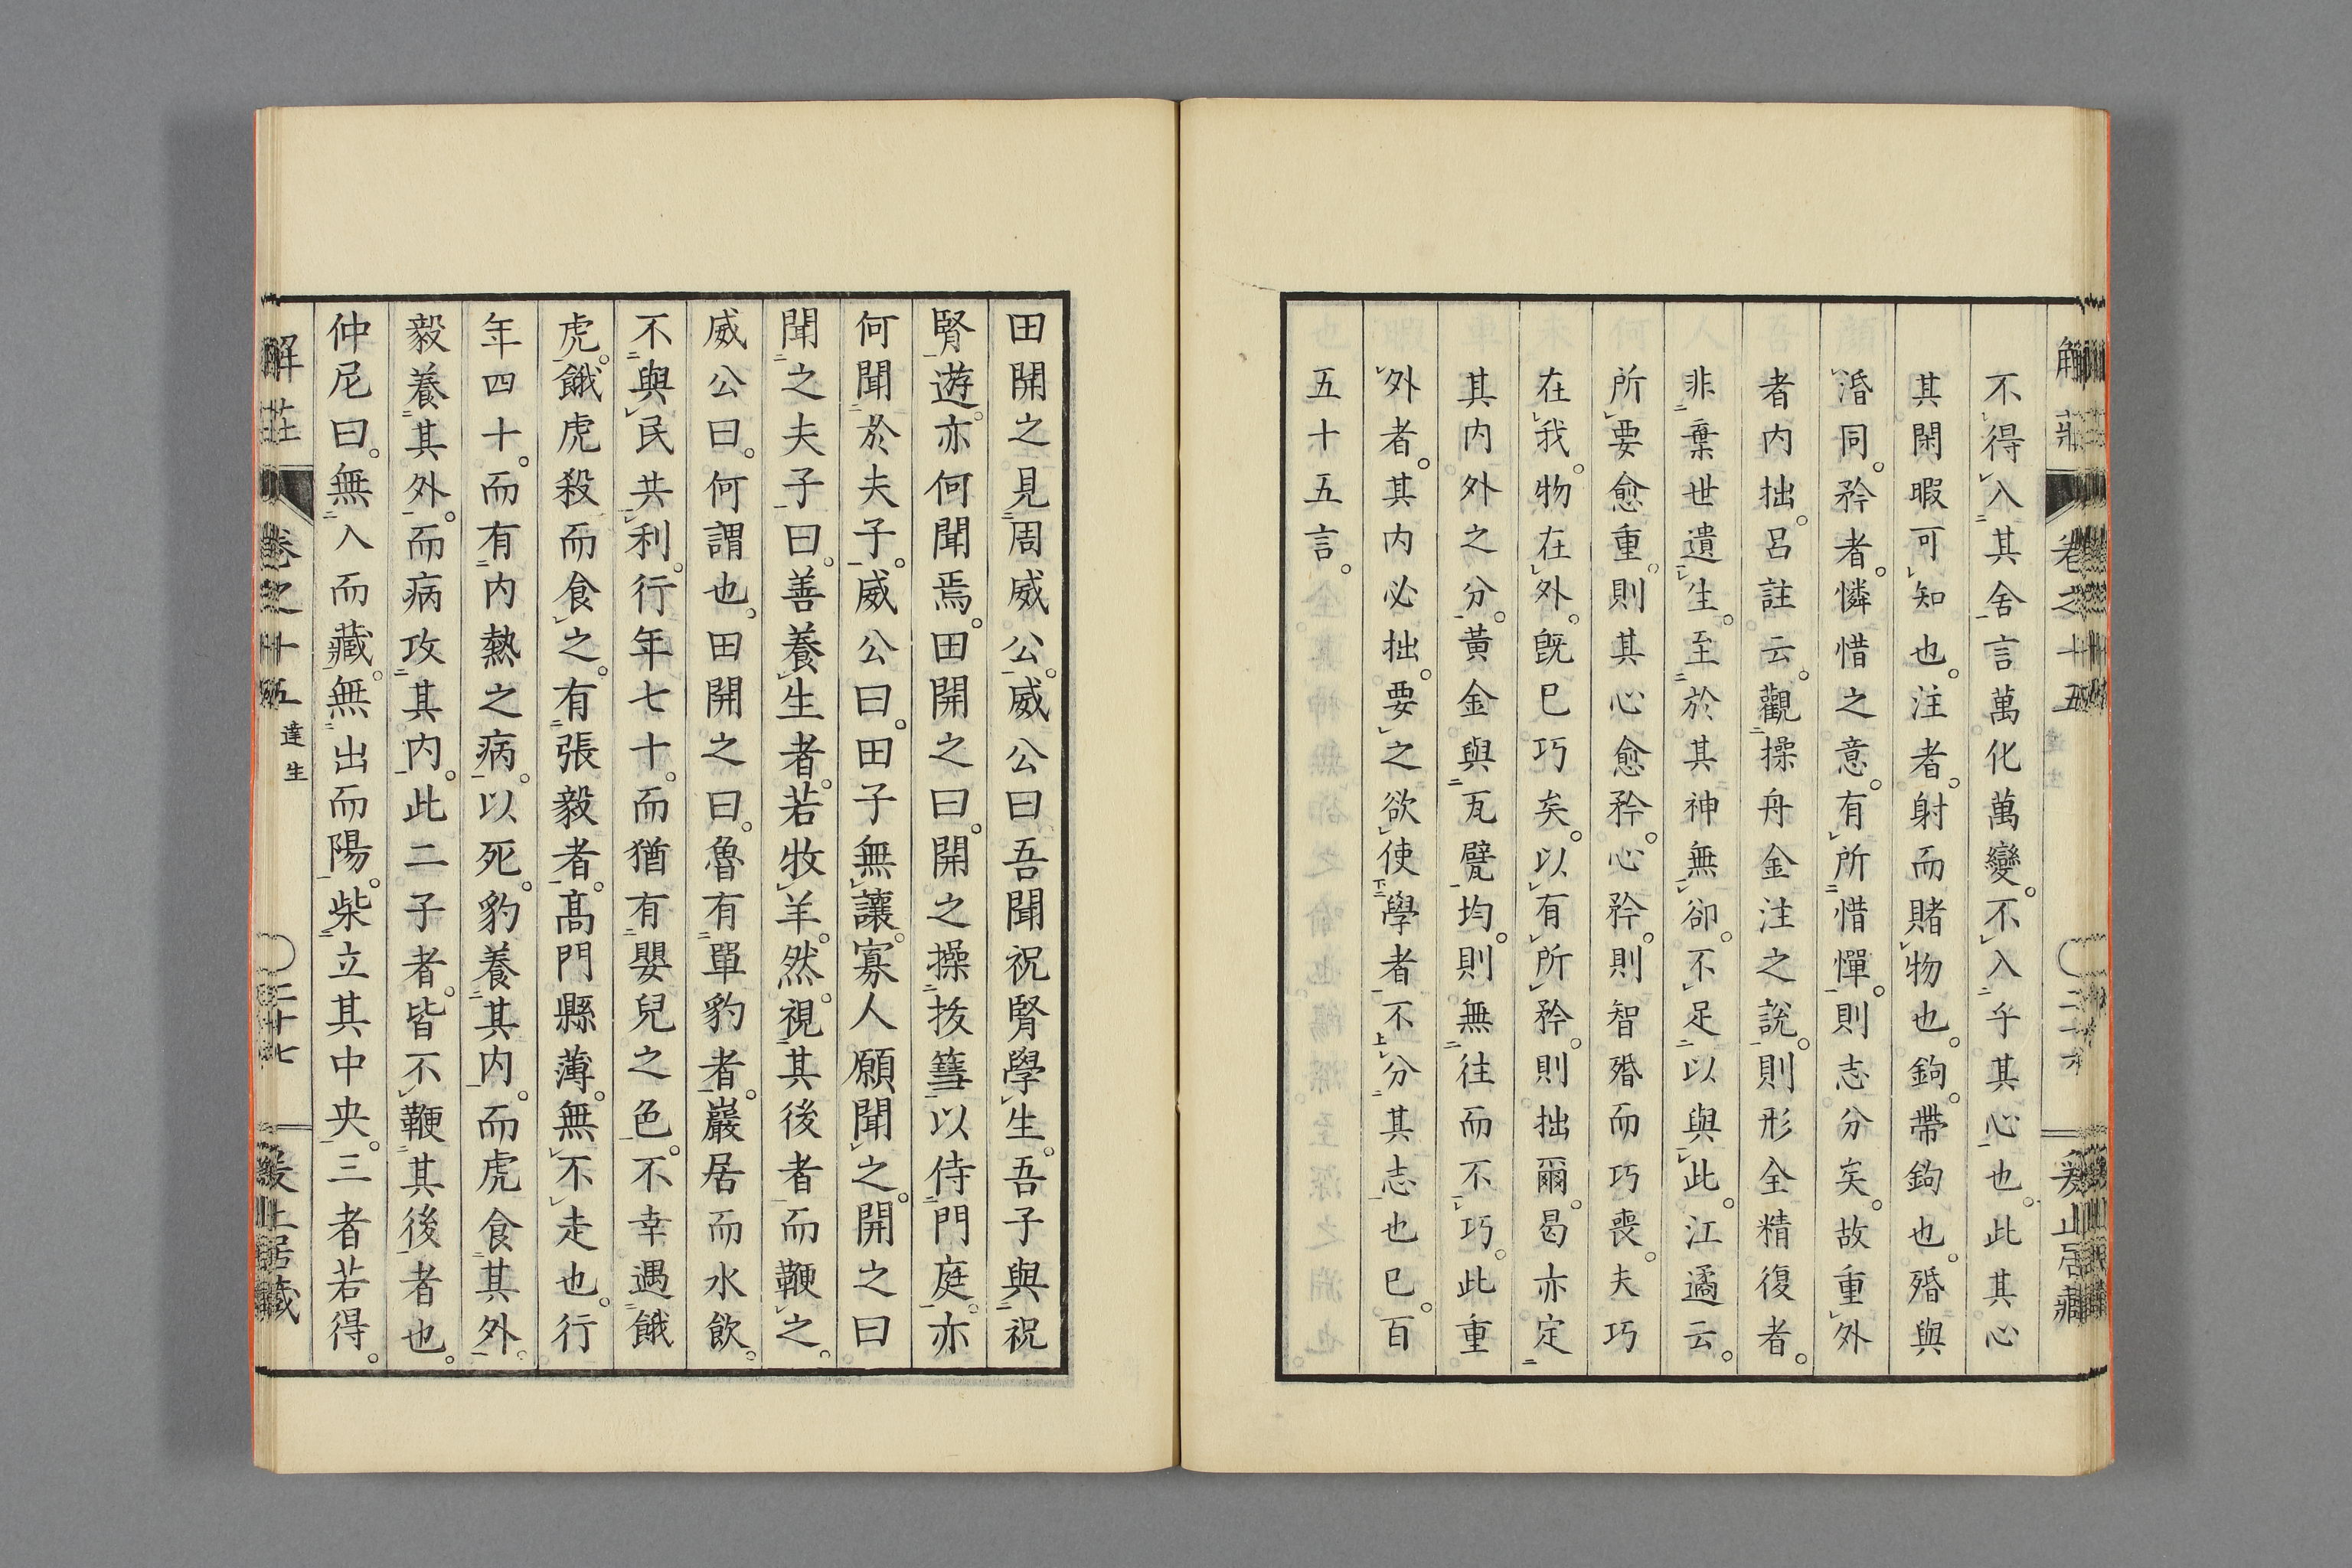 不得入其舍言萬化萬變。不入乎其心也。此其心
其閑暇可知也。注者。射而賭物也。鉤。帶鉤也。殙與
涽同。矜者。憐惜之意。有所惜憚。則志分矣。故重外
者內拙。呂註云。觀操舟金注之說。則形全精復者。
非棄世遺生。至於其神無卻。不足以與此。江遹云。
所要愈重。則其心愈矜。心矜。則智殙而巧喪。夫巧
在我。物在外。既已巧矣。以有所矜。則拙爾。曷亦定
其內外之分。黃金與瓦甓均。則無往而不巧。此重
外者。其內必拙。要之欲使學者不分其志也已。百
五十五言。
田開之見周威公。威公曰吾聞祝腎學生。吾子與祝
腎遊。亦何聞焉。田開之曰。開之操拔篲以侍門庭。亦
何聞於夫子。威公曰。田子無讓。寡人願聞之。開之曰
聞之夫子曰。善養生者。若牧羊。然。視其後者而鞭之。
威公曰。何謂也。田開之曰。魯有單豹者。巖居而水飲。
不與民共利。行年七十。而猶有嬰兒之色。不幸遇餓
虎。餓虎殺而食之。有張毅者。高門縣薄。無不走也。行
年四十。而有內熱之病。以死。豹養其內。而虎食其外。
毅養其外。而病攻其內。此二子者。皆不鞭其後者也。
仲尼曰。無入而藏。無出而陽。柴立其中央。三者若得。
解莊
卷之十五
達生
二十七